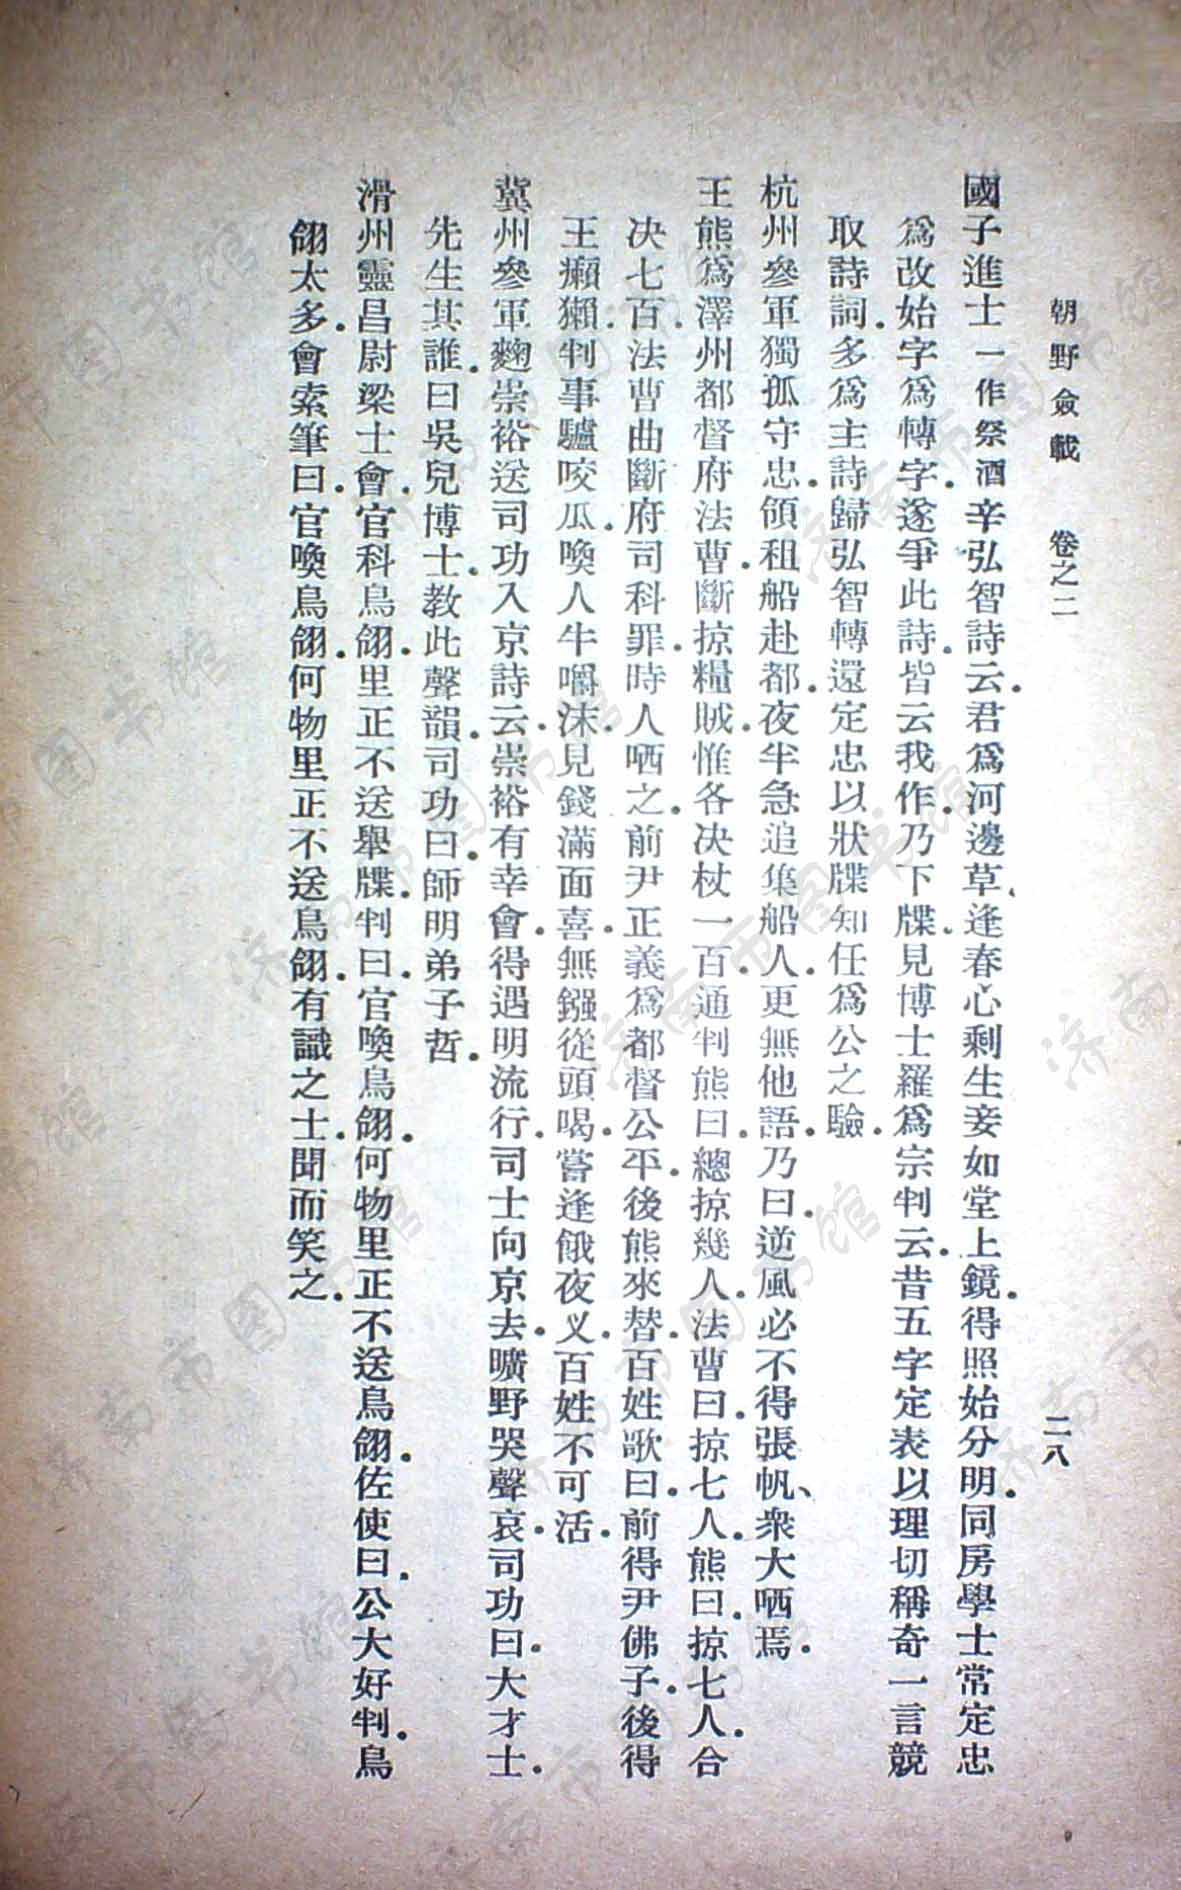 朝野僉載　卷之二　二八
國子進士一作祭酒辛弘智詩云．君爲河邊草、逢春心剩生妾如堂上鏡．得照始分明．同房學士常定忠
爲改始字爲轉字．遂爭此詩．皆云我作．乃下牒．見博士羅爲宗判云．昔五字定表以理切稱奇一言競
取詩詞．多爲主詩歸弘智轉還定忠以狀牒知任爲公之驗．
杭州參軍獨孤守忠．領租船赴都．夜半急追集船人．更無他語．乃曰．逆風必不得張帆、衆大哂焉．
王熊爲澤州都督府法曹．斷掠糧賊．惟各决杖一百．通判熊曰．總掠幾人．法曹曰．掠七人．熊曰．掠七人．合
决七百．法曹曲斷．府司科罪．時人哂之．前尹正義爲都督公平．後熊來替．百姓歌曰．前得尹佛子．後得
王癩獺．判事驢咬瓜．喚人牛嚼沫．見錢滿面喜．無鏹從頭喝．嘗逢餓夜义．百姓不可活．
冀州參軍麴崇裕送司功入京詩云．崇裕有幸會．得遇明流行．司士向京去．曠野哭聲哀．司功曰．大才士．
先生其誰．曰吳兒博士．教此聲韻．司功曰．師明弟子哲．
滑州靈昌尉梁士會．官科鳥翎．里正不送舉牒．判曰．官喚鳥翎．何物里正不送鳥翎．佐使曰．公大好判．鳥
翎太多．會索筆曰．官喚鳥翎．何物里正不送鳥翎．有識之士．聞而笑之．